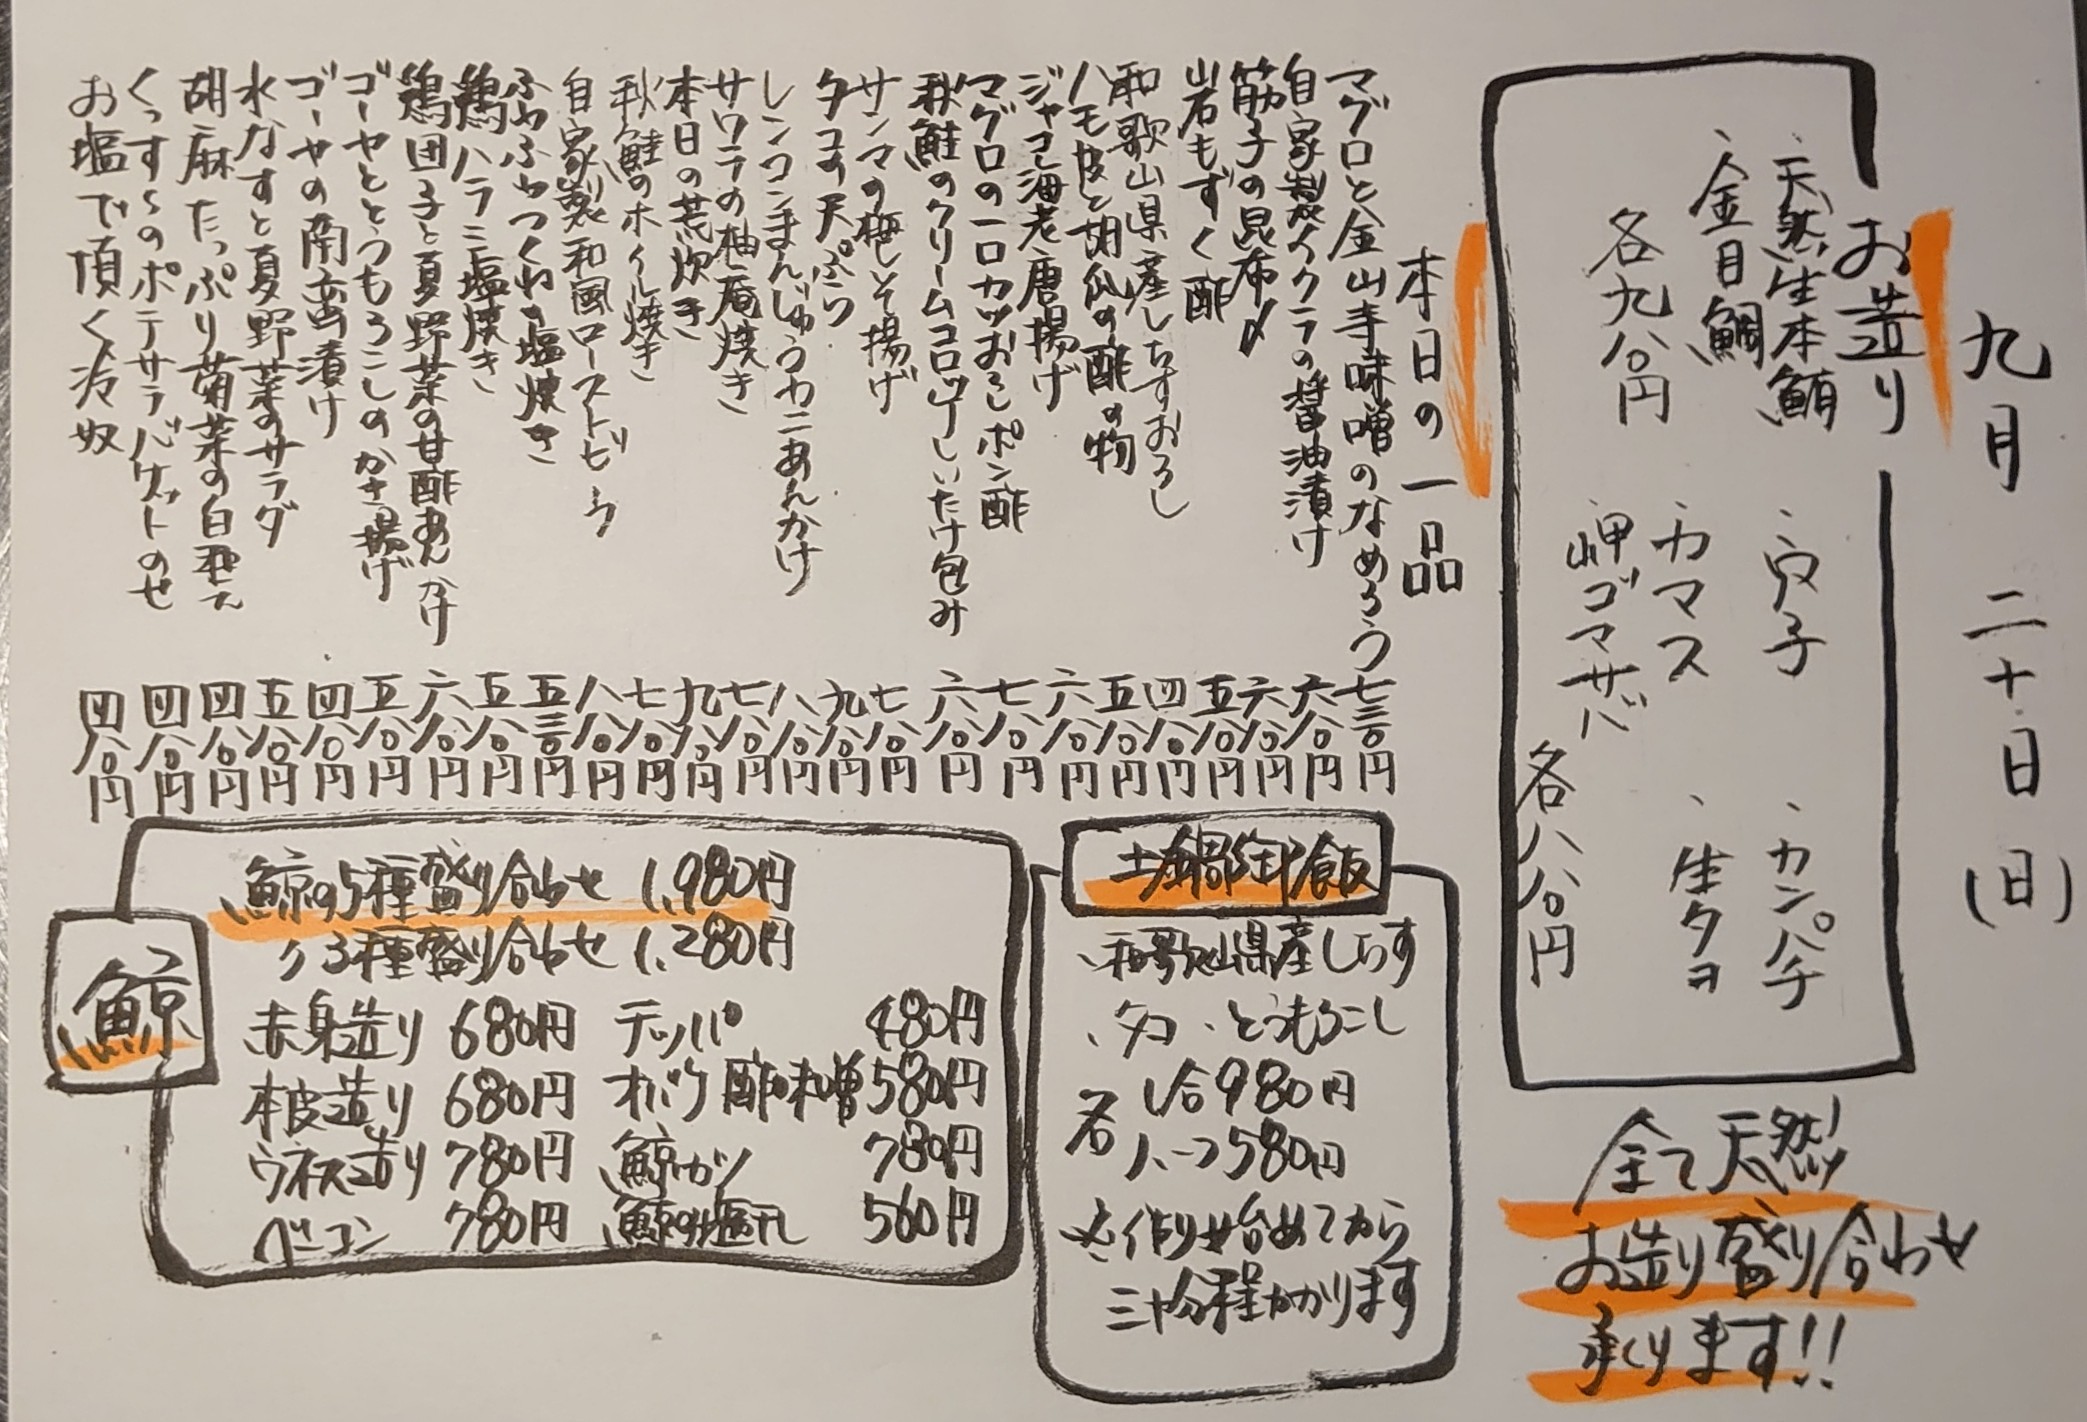 九月 二十日 (日)
お造り
、天然生本鮪
、金目鯛
各九八〇円
、穴子
、カマス
、岬ゴマサバ
、カンパチ
、生タコ
各八八〇円
全て天然
お造り盛り合わせ
承ります!!
本日の一品
マグロと金山寺味噌のなめろう 七三〇円
自家製イクラの醤油漬け 六八〇円
筋子の昆布〆 六八〇円
岩もずく酢 五八〇円
和歌山県産しらすおろし 四八〇円
ハモ皮と胡瓜の酢の物 五八〇円
ジャコ海老唐揚げ 六八〇円
マグロの一口カツおろしポン酢 七八〇円
秋鮭のクリームコロッケしいたけ包み 六八〇円
サンマの梅しそ揚げ 七八〇円
タコの天ぷら 九八〇円
レンコンまんじゅうカニあんかけ 八八〇円
サワラの柚庵焼き 七八〇円
本日の荒炊き 九八〇円
秋鮭のホイル焼き 七八〇円
自家製和風ローストビーフ 八八〇円
ふわふわつくねの塩焼き 五三〇円
鶏ハラミ塩焼き 五八〇円
鶏団子と夏野菜の甘酢あんかけ 六八〇円
ゴーヤととうもろこしのかき揚げ 五八〇円
ゴーヤの南蛮漬け 四八〇円
水なすと夏野菜のサラダ 五八〇円
胡麻たっぷり菊菜の白和え 四八〇円
くっすぅのポテサラバケットのせ 四八〇円
お塩で頂く冷奴 四八〇円
土鍋御飯
、和歌山県産しらす
、タコ 、とうもろこし
各 1合980円
ハーフ580円
※作り始めてから
三十分程かかります
鯨
鯨の5種盛り合わせ 1,980円
〃 3種盛り合わせ 1,280円
赤身造り 680円 テッパ 480円
本皮造り 680円 オバケ酢味噌 580円
ウネス造り 780円 鯨カツ 780円
ベーコン 780円 鯨の塩干し 560円